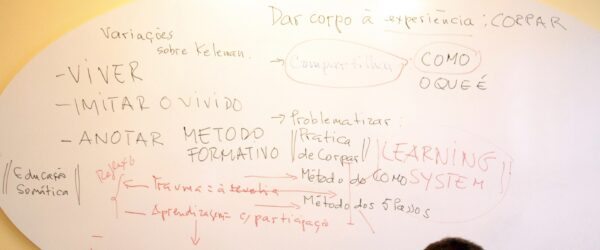 Dar corpo à experiência: CORPAR
Variações
sobre Keleman.
Compartilha
COMO
O QUE É
- VIVER
- IMITAR O VIVIDO
- ANOTAR METODO
FORMATIVO
→ Problematizar:
Prática
de Corpar
LEARNING
SYSTEM
Educação
Somática
Método do COMO
Trauma = à
Método dos 5 Passos
Aprendizagem c/ participação